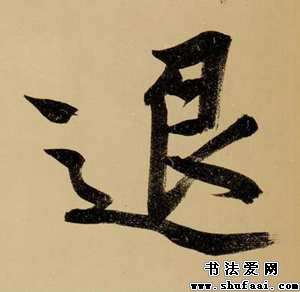 退
书法爱网
www.shufaai.com